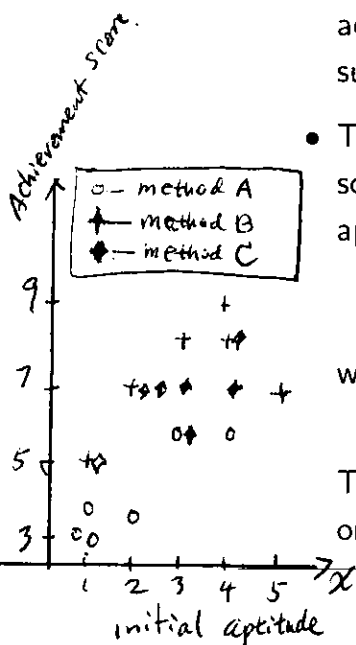 Achievement Score.
o – method A
+ – method B
♦ – method C
9
7
5
3
1 2 3 4 5 x
initial aptitude
su
• T
sc
ap
w
T